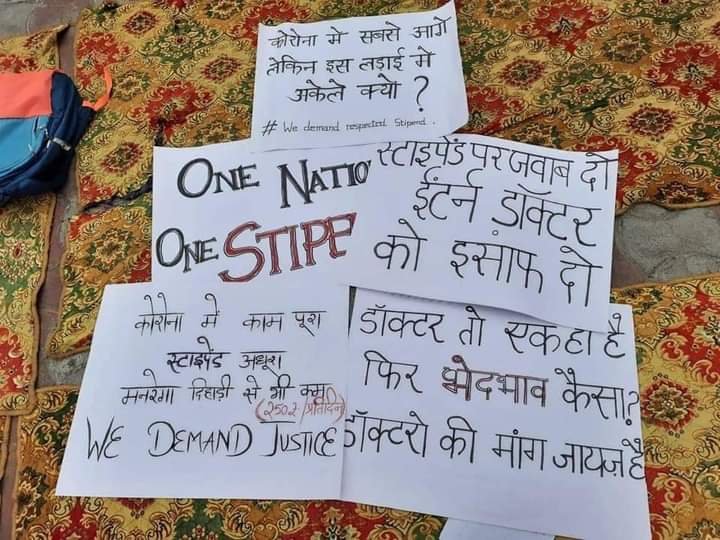 कोरोना मे सबसे आगे
लेकिन इस लड़ाई मे
अकेले क्यो ?
# We demand respected Stipend.
ONE NATIO
ONE STIPE
स्टाइपेंड पर जवाब दो
ईंटर्न डॉक्टर
को इसांफ दो
कोरोना में काम पूरा
स्टाइपेंड अधूरा
मनरेगा दिहाड़ी से भी कम
(250₹/प्रतिदिन)
WE DEMAND JUSTICE
डॉक्टर तो एकहा है
फिर भेदभाव कैसा?
डॉक्टरो की मांग जायज़ है